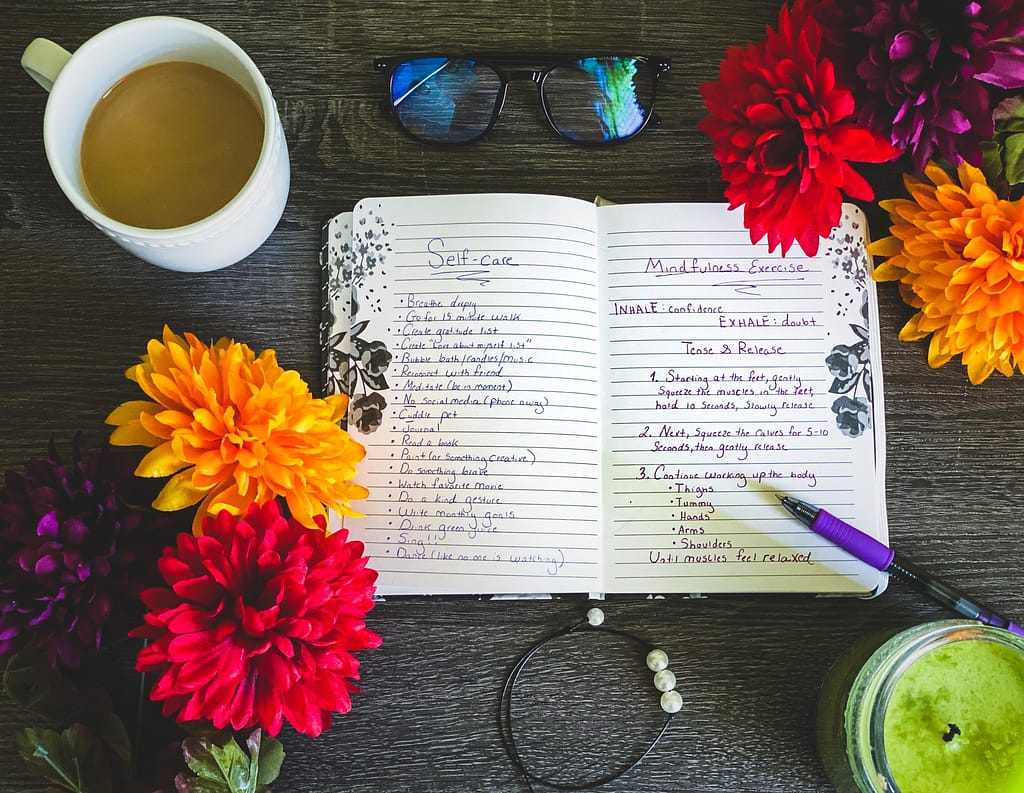 Self-care
• Breathe deeply
• Go for 15 minute walk
• Create gratitude list
• Create "Love about myself list"
• Bubble bath/candles/music
• Reconnect with friend
• Meditate (be in moment)
• No social media (phone away)
• Cuddle pet
• Journal
• Read a book
• Paint (or something creative)
• Do something brave
• Watch favorite movie
• Do a kind gesture
• Write monthly goals
• Drink green juice
• Sing!!
• Dance (like no one is watching)
Mindfulness Exercise
INHALE: confidence
EXHALE: doubt
Tense & Release
1. Starting at the feet, gently
squeeze the muscles in the feet,
hold 10 seconds, slowly release
2. Next, squeeze the calves for 5-10
seconds, then gently release
3. Continue working up the body
• Thighs
• Tummy
• Hands
• Arms
• Shoulders
Until muscles feel relaxed